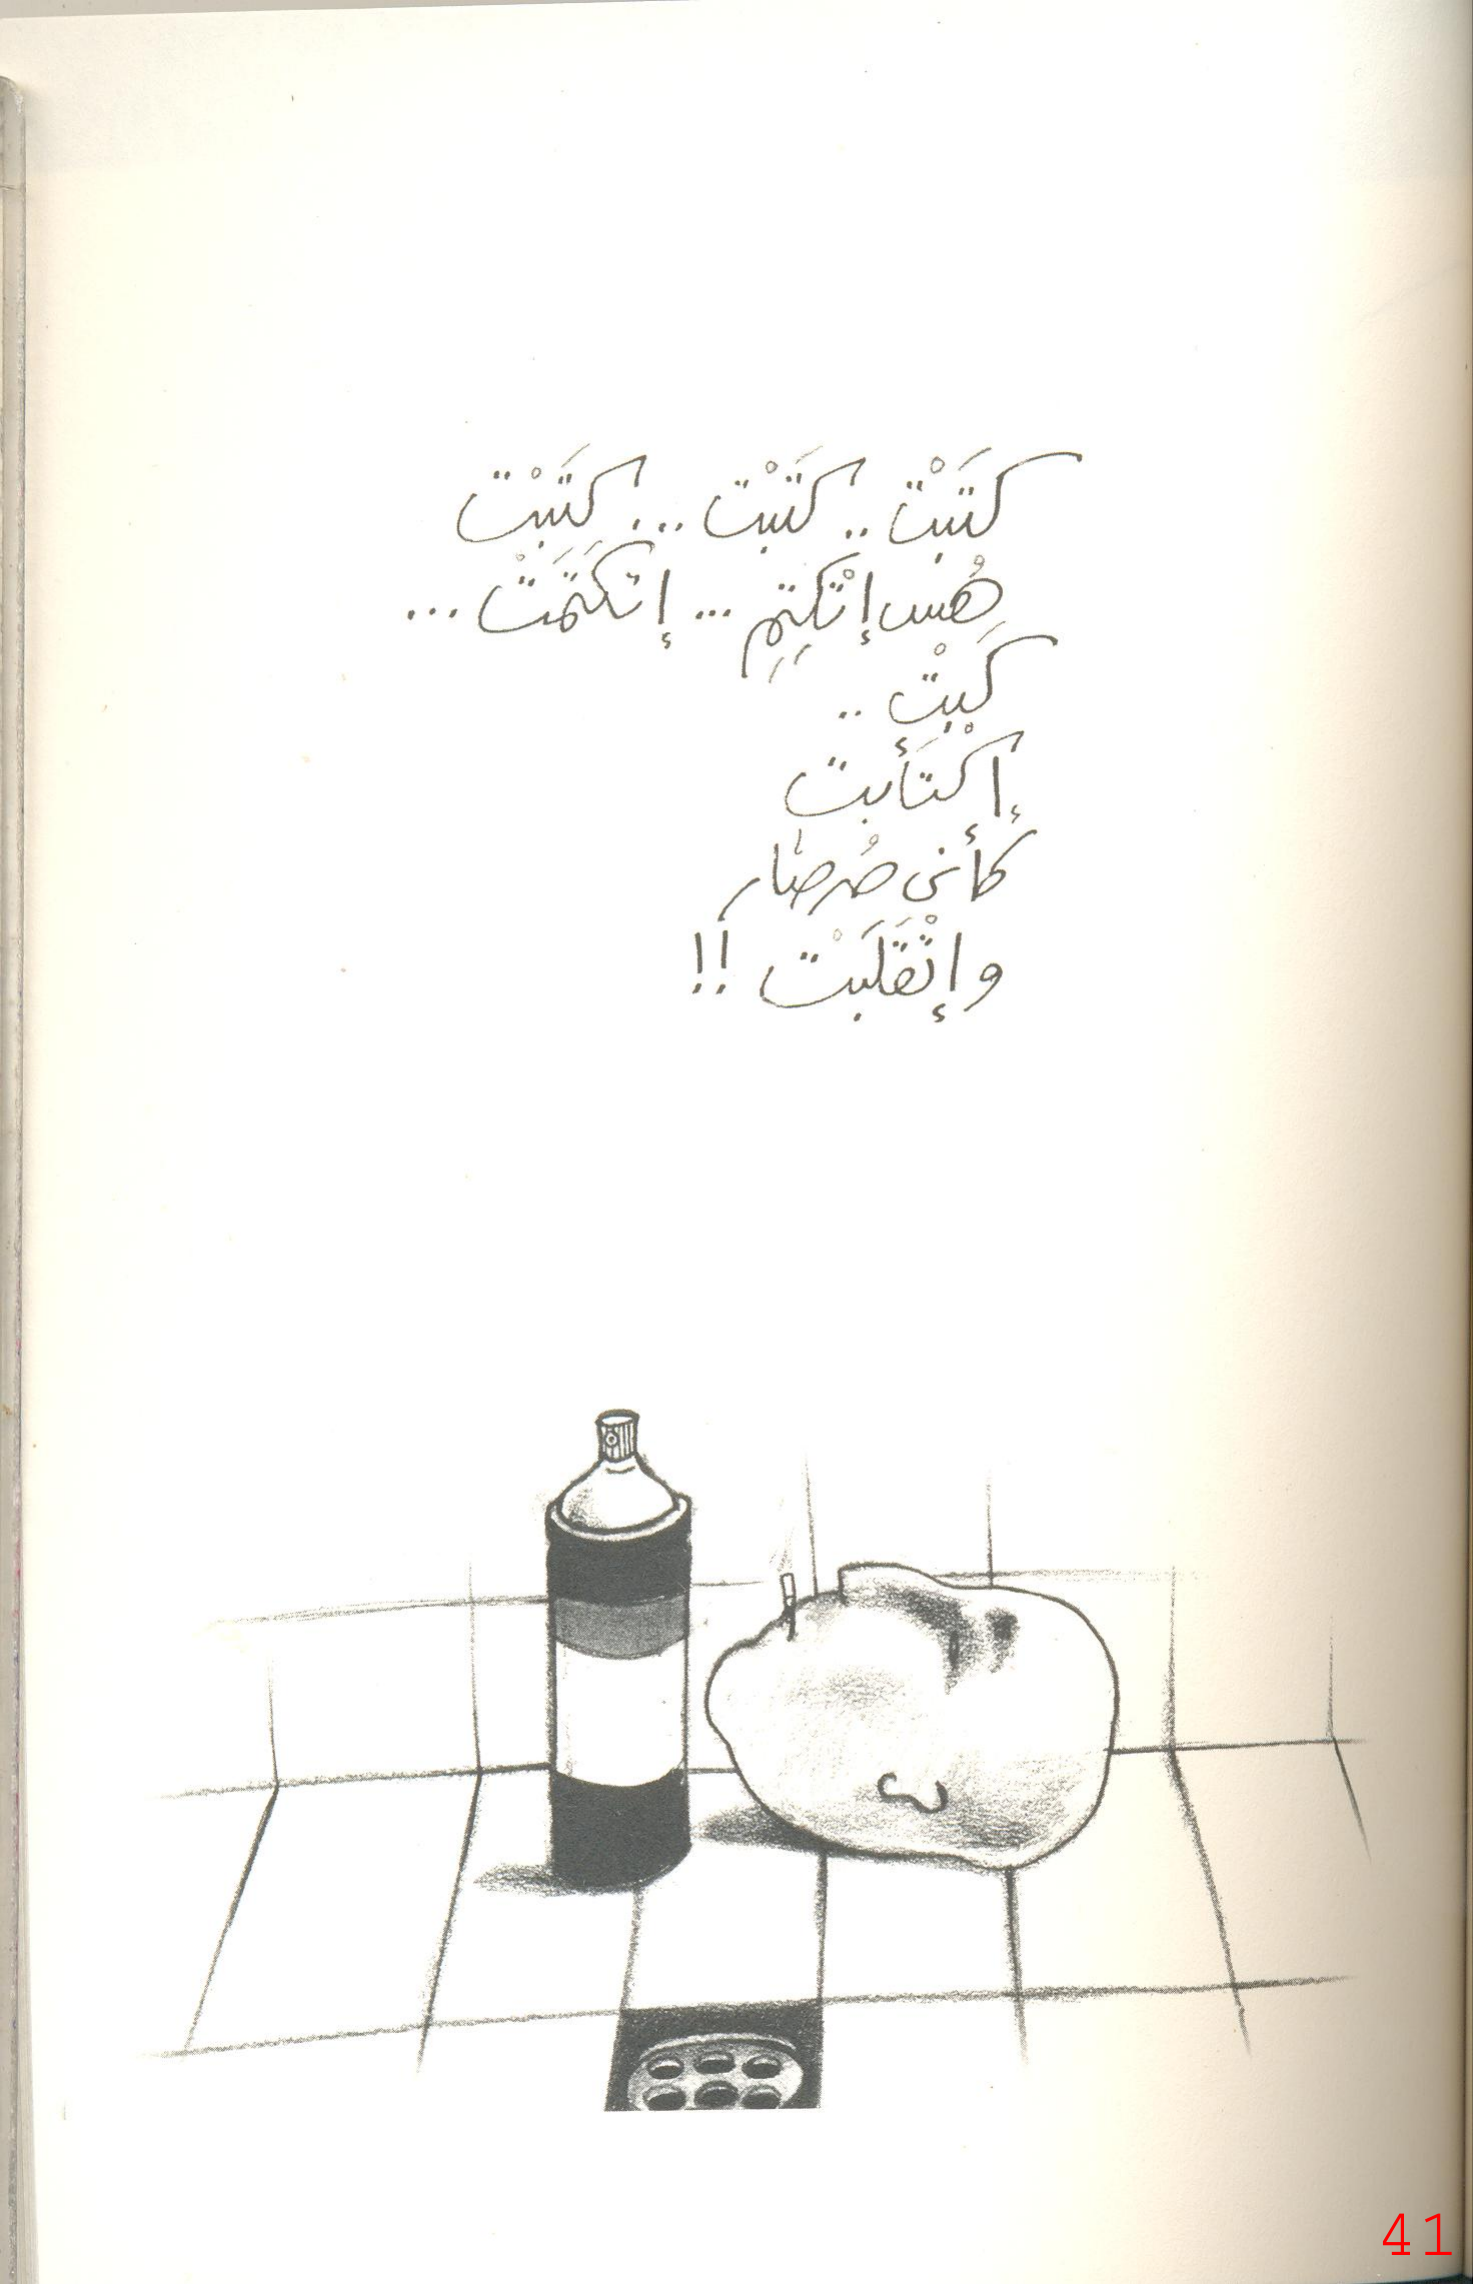 كَتَبْتْ .. كَتَبْت ... كَتَبْت
هُس إتْكِتِم ... إتكَتَمْتْ ...
كَبْتْ ..
إكْتَأَبت
كأني صُرصار
و إتْقَلَبْت !!
41